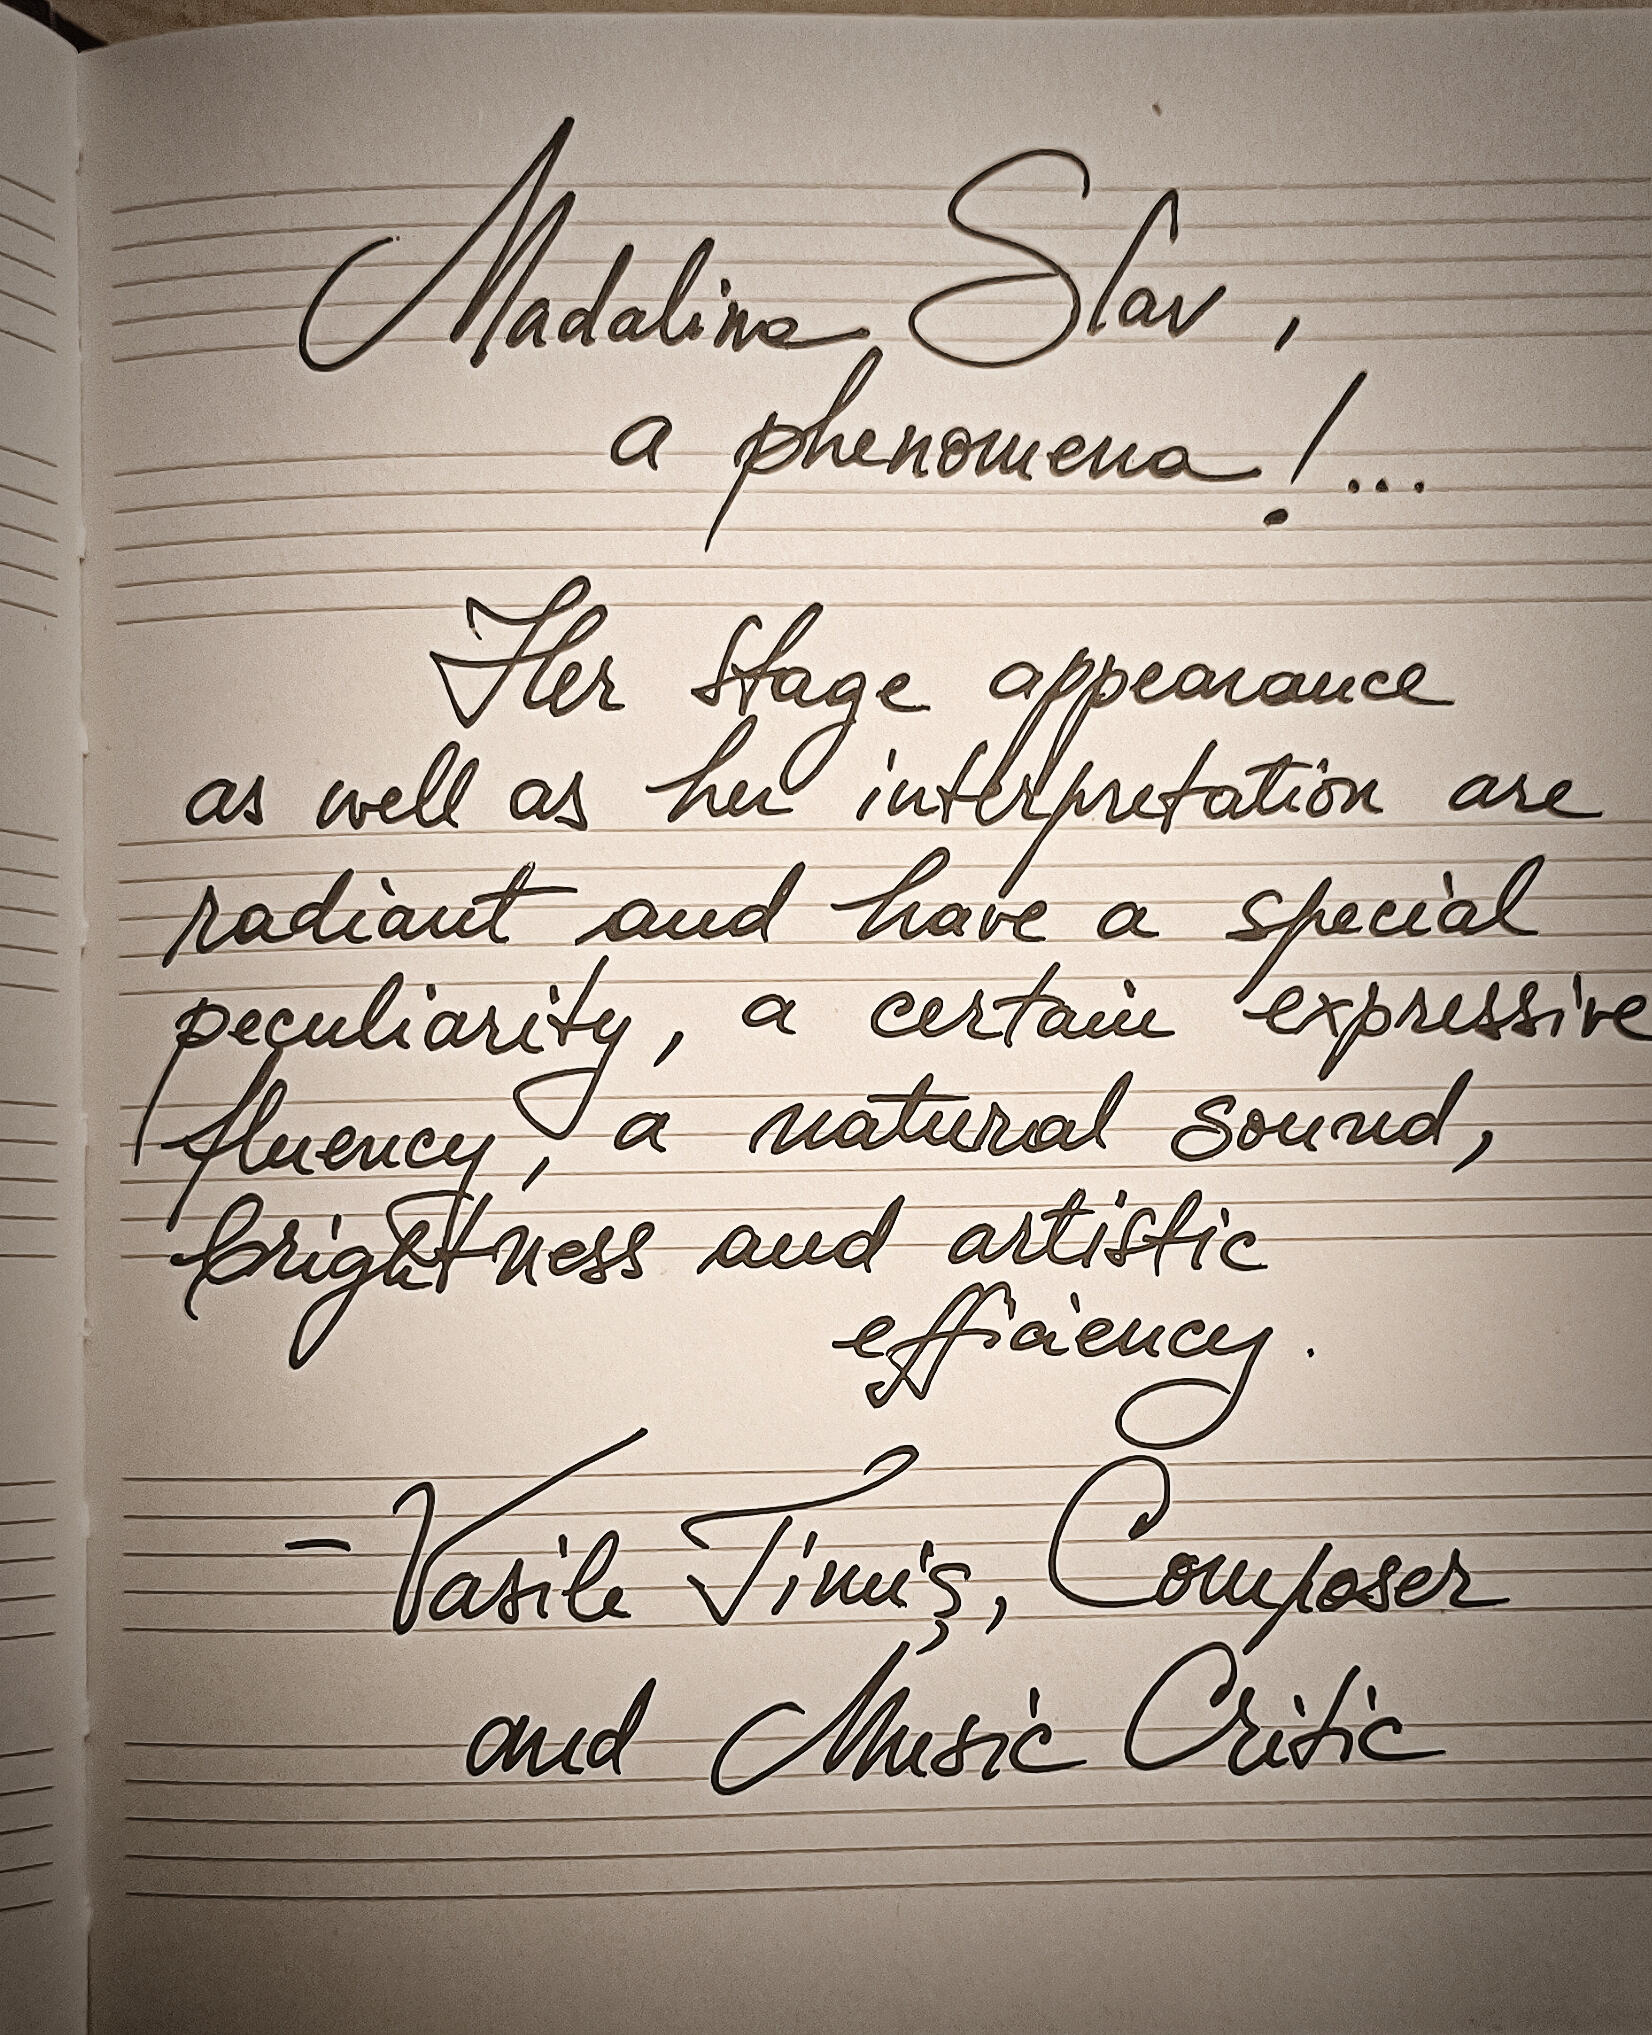 Madalina Slav,
a phenomena!...
Her stage appearance
as well as her interpretation are
radiant and have a special
peculiarity, a certain expressive
fluency, a natural sound,
brightness and artistic
efficiency.
– Vasile Timiș, Composer
and Music Critic